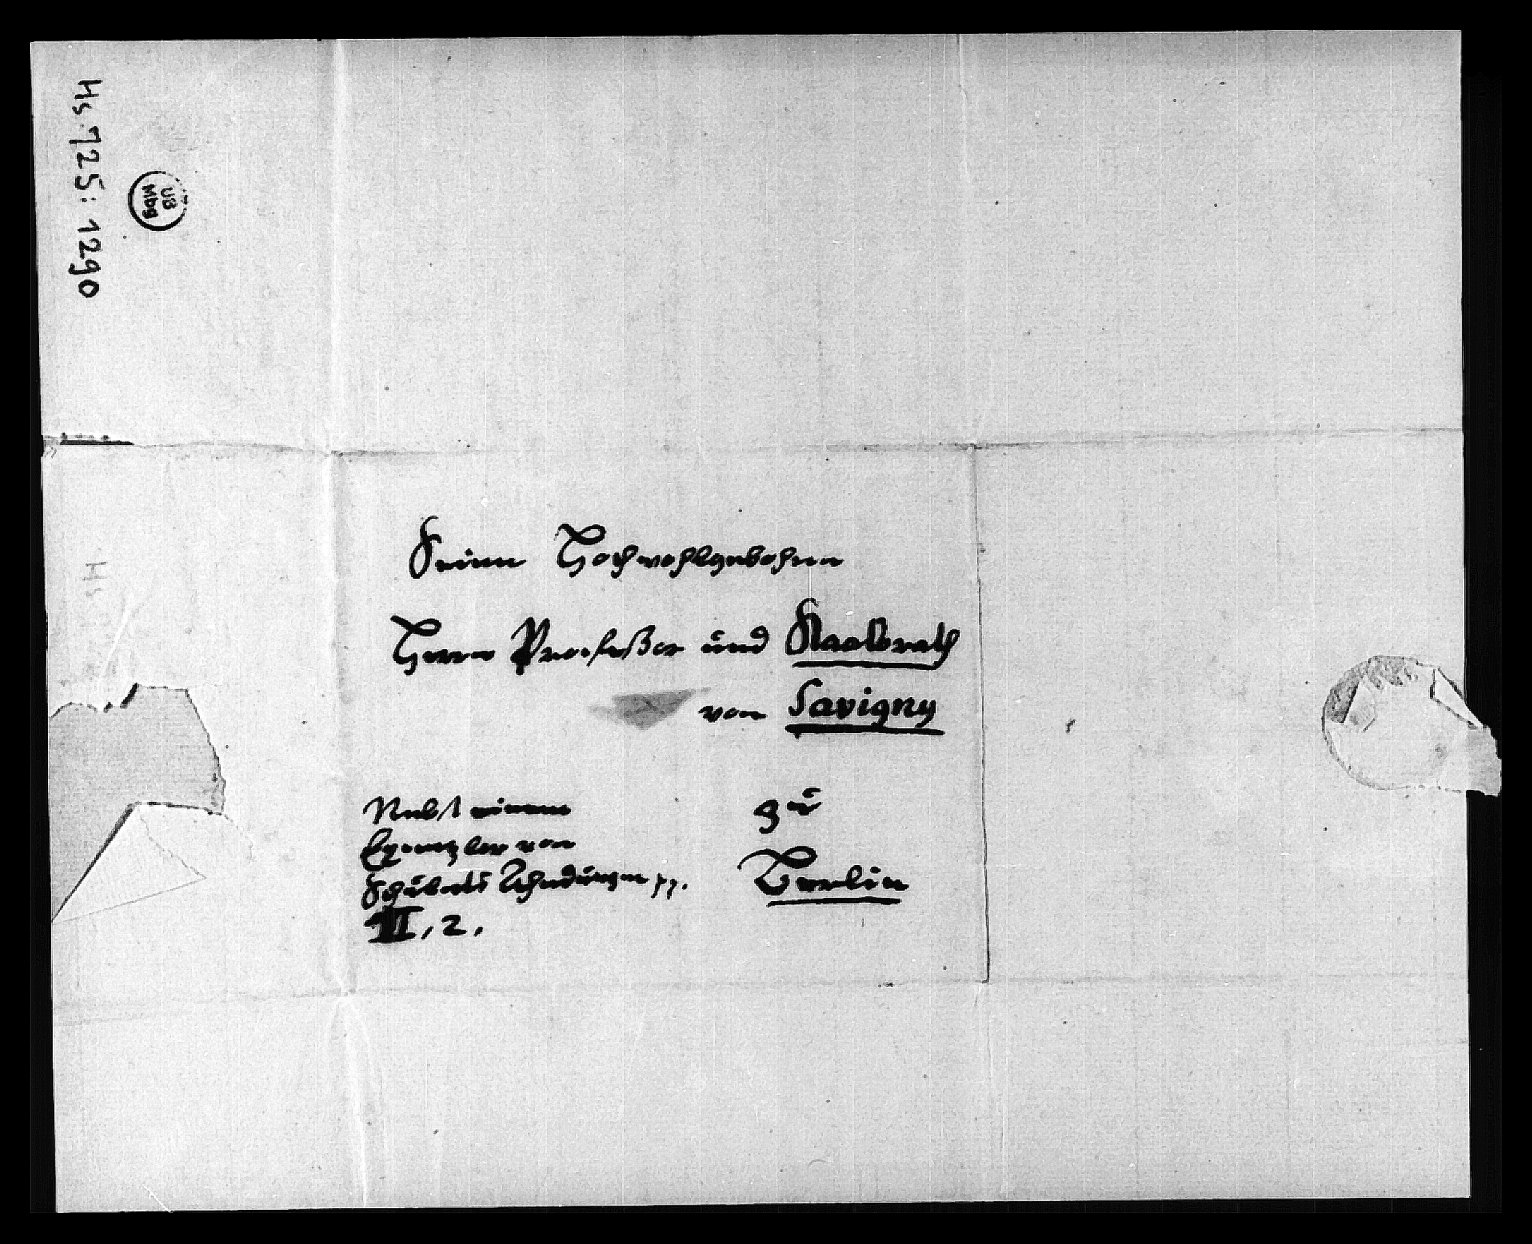 Hs 725: 1290
UB
Mbg
Seiner Hochwohlgebohren
Herrn Profeßor und Staatsrath
von Savigny
zu
Berlin
Nebst einem
Exemplar von
Schuberts Ahndungen pp.
II, 2.